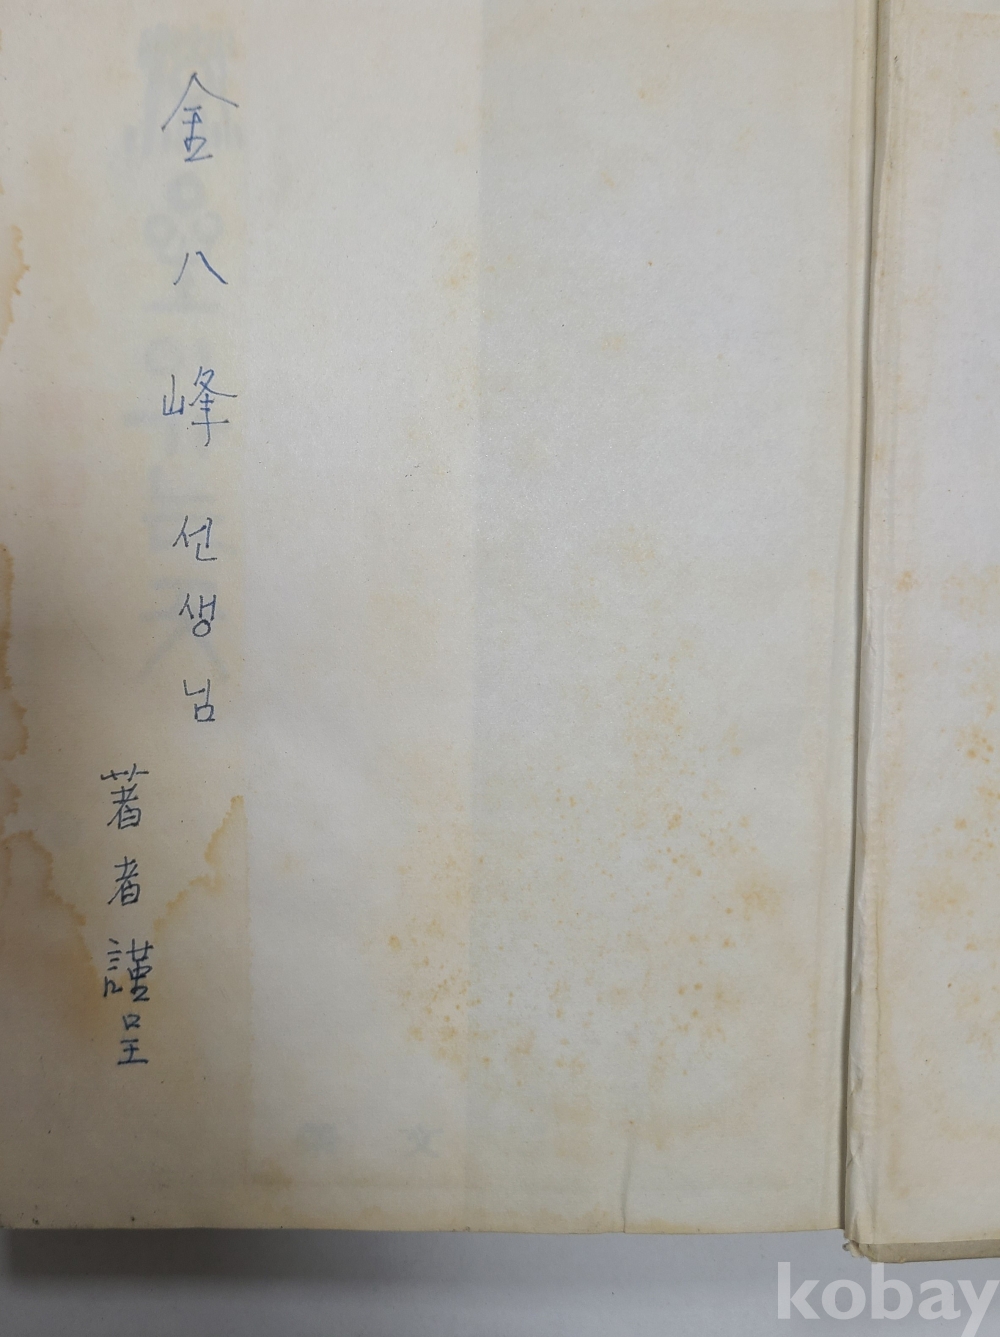 金八峰 선생님
著者 謹呈
kobay